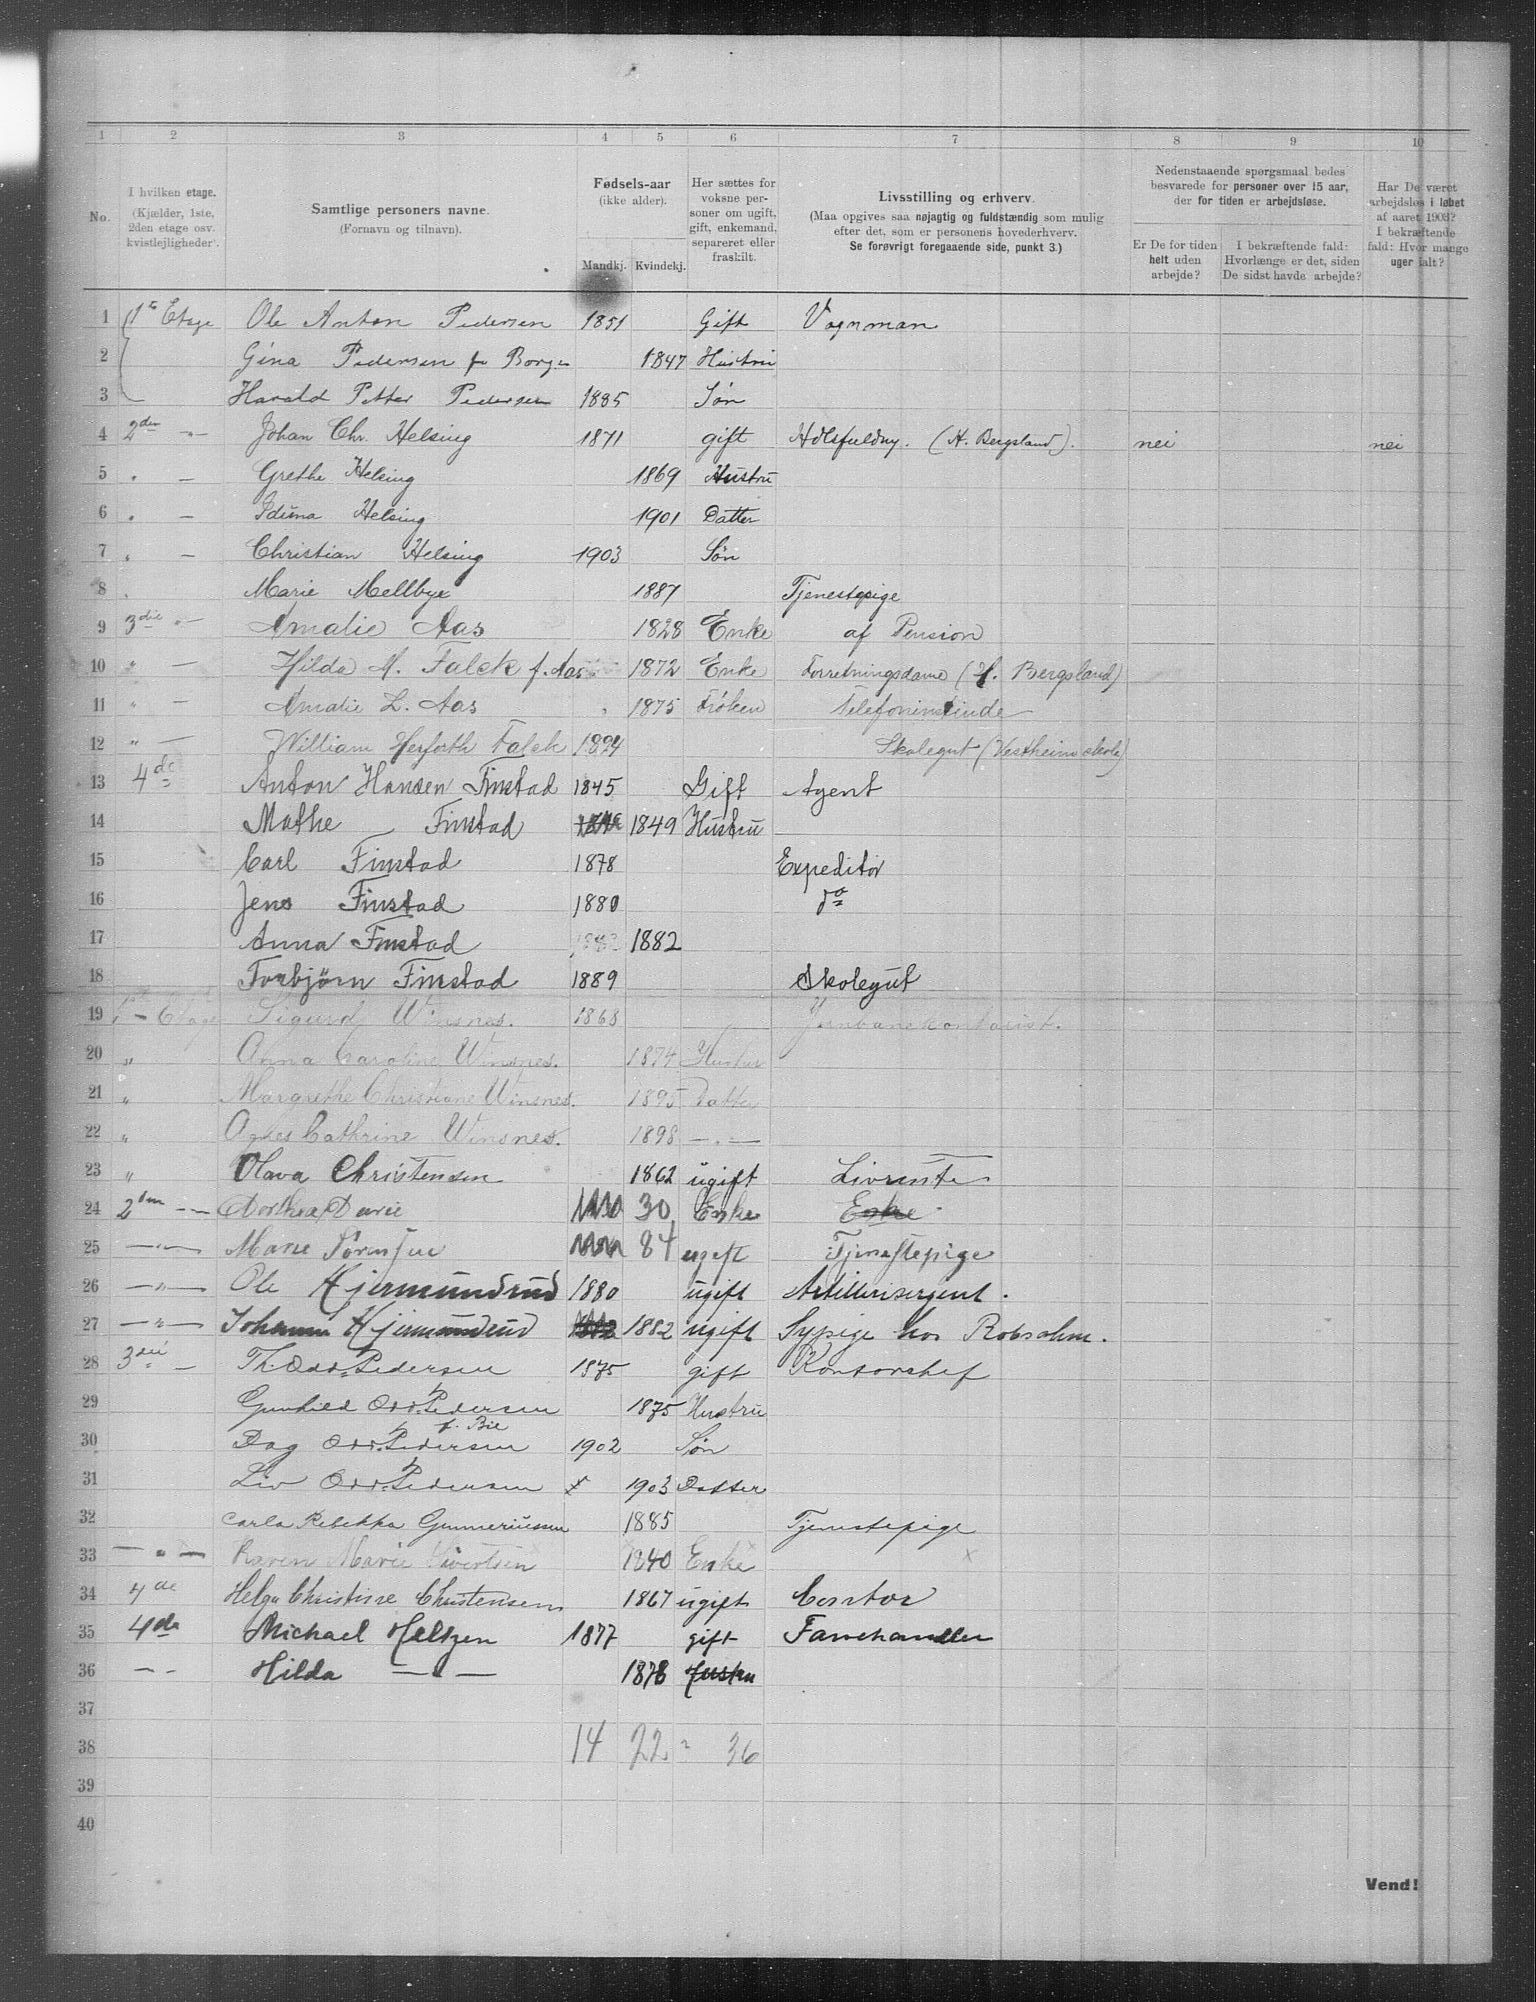 1 2 3 4 5 6 7 8 9 10
No.
I hvilken etage.
(Kjælder, 1ste,
2den etage osv.
kvistlejligheder).
Samtlige personers navne.
(Fornavn og tilnavn).
Fødsels-aar
(ikke alder).
Mandkj. Kvindekj.
Her sættes for
voksne per-
soner om ugift,
gift, enkemand,
separeret eller
fraskilt.
Livsstilling og erhverv.
(Maa opgives saa nøjagtig og fuldstændig som mulig
efter det, som er personens hovederhverv.
Se forøvrigt foregaaende side, punkt 3.)
Nedenstaaende spørgsmaal bedes
besvarede for personer over 15 aar,
der for tiden er arbejdsløse.
Er De for tiden
helt uden
arbejde?
I bekræftende fald:
Hvorlænge er det, siden
De sidst havde arbejde?
Har De været
arbejdsløs i løbet
af aaret 1903?
I bekræftende
fald: Hvor mange
uger ialt?
1 1ste Etage Ole Anton Pedersen 1851 Gift Vognman
2 Gina Pedersen f. Borge 1847 Hustru
3 Harald Petter Pedersen 1885 Søn
4 2den -"- Johan Chr. Helsing 1871 gift (H. Bergsland). nei nei
5 " - Grethe Helsing 1869 Hustru
6 " - Iduna Helsing 1901 Datter
7 " - Christian Helsing 1903 Søn
8 " Marie Mellbye 1887 Tjenestepige
9 3die "- Amalie Aas 1828 Enke af Pension
10 " - Hilda M. Falck f. Aas 1872 Enke Forretningsdame (H. Bergsland)
11 " - Amalie L. Aas 1875 Frøken Telefonistinde
12 " - William Herforth Falck 1894 Skolegut (Vestheim skole)
13 4de Anton Hansen Finstad 1845 Gift Agent
14 Mathe Finstad 1849 Hustru
15 Carl Finstad 1878 Expeditør
16 Jens Finstad 1880 do
17 Anna Finstad 1882 1882
18 Torbjørn Finstad 1889 Skolegut
19 1ste Etage Sigurd Winsnes. 1868 Jernbanekontorist.
20 " Anna Caroline Winsnes. 1874 Hustru
21 " Margrethe Christiane Winsnes. 1895 Datter
22 " Agnes Cathrine Winsnes. 1898 -"-
23 " Olava Christensen 1862 ugift Livrente
24 2den -- Dorthea Davie 30 Enke Enke
25 -"- Marie Sørensen 84 ugift Tjenestepige
26 -"- Ole Hjermundrud 1880 ugift Artillerisergent.
27 -"- Johanna Hjermundrud 1882 ugift Sypige hos Robsahm.
28 3die " - Th. Odd. Pedersen 1875 gift Kontorchef
29 Gunhild Odd. Pedersen 1875 Hustru
f. Bie
30 Dag Odd. Pedersen 1902 Søn
31 Liv Odd. Pedersen x 1903 Datter
32 Carla Rebekka Gunneriussen 1885 Tjenestepige
33 -"- Karen Marie Sivertsen 1840 Enke x
34 4de Helga Christine Christensen 1867 ugift Contor
35 4de Michael Heltzen 1877 gift Farvehandler
36 -- Hilda -"- 1878 Hustru
37
38 14 22 = 36
39
40
Vend!